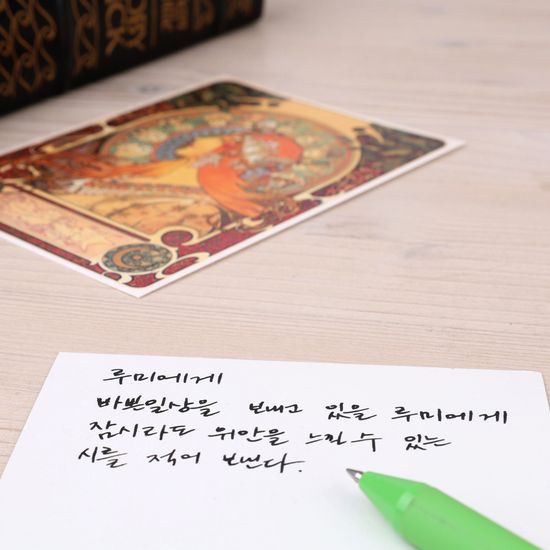 루미에게
바쁜일상을 보내고 있을 루미에게
잠시라도 위안을 느낄 수 있는
시를 적어 보낸다.